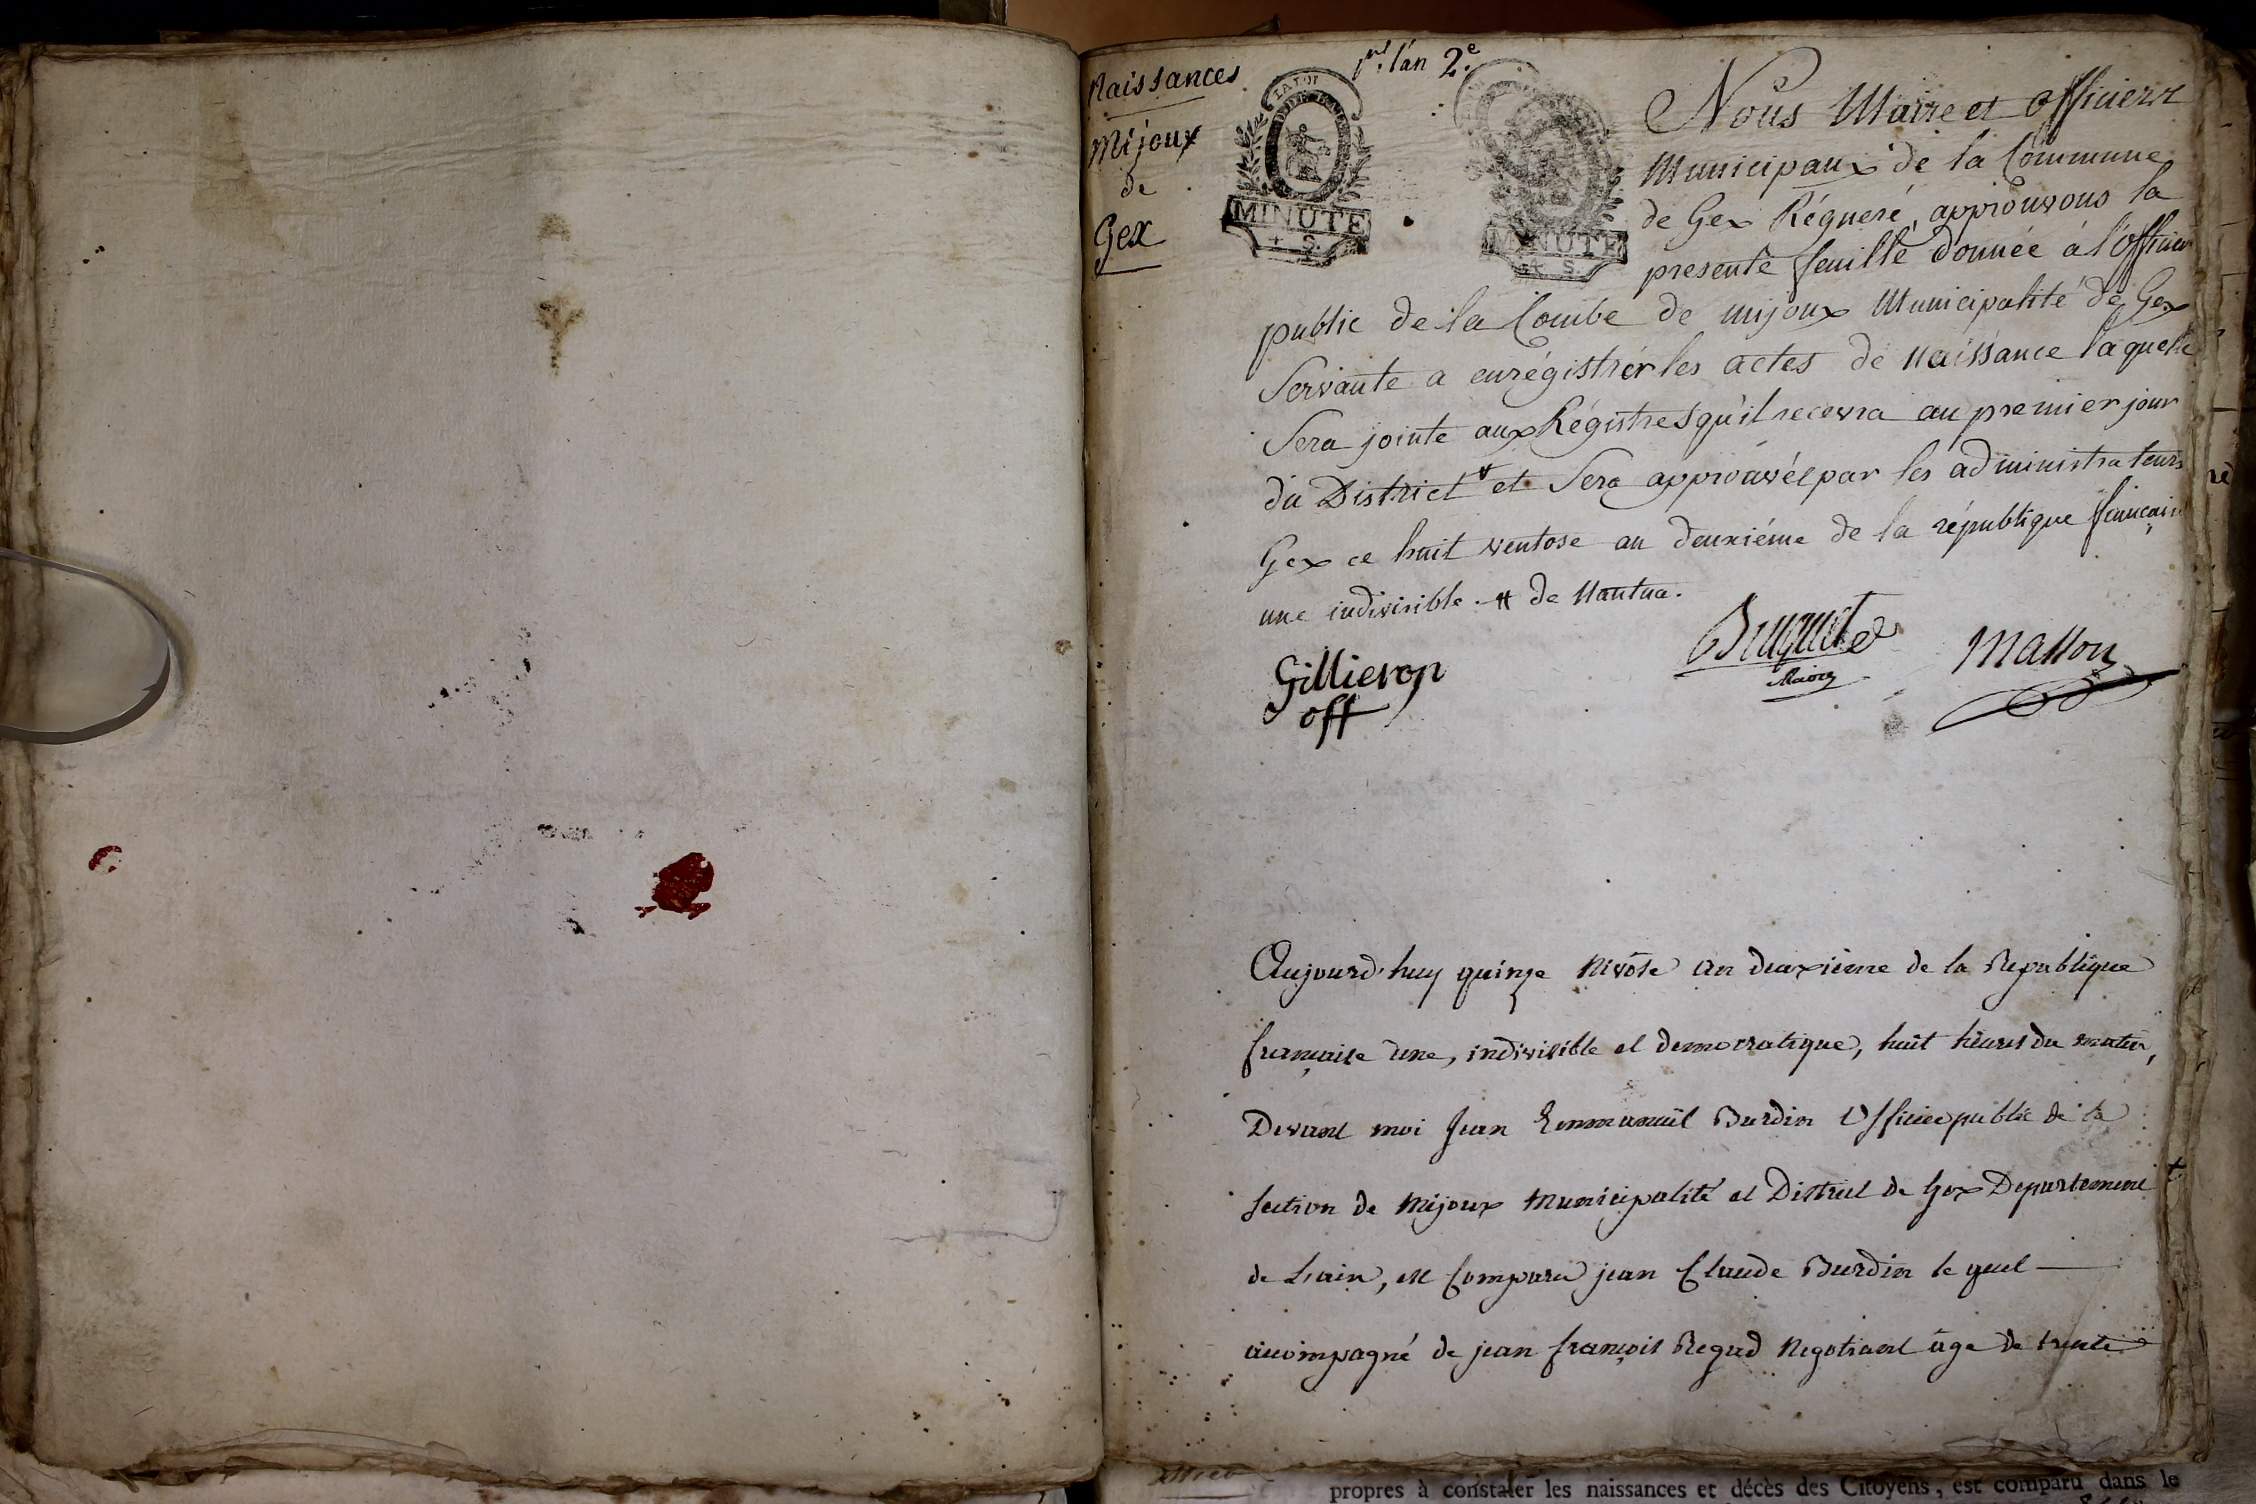 Naissances
Mijoux
de
Gex
pr. l'an 2e.
LA LOI
MINUTE
4 S.
MINUTE
4 S.
Nous Maire et officiers
Municipaux de la Commune
de Gex Régneré, approuvons la
presente feuille donnée à l'officier
public de la Combe de mijoux Municipalité de Gex
Servante a enrégistrér les actes de naissance laquelle
Sera jointe aux Régistres qu'il recevra au premier jour
du District # et Sera approuvée par les administrateurs
Gex ce huit ventose an deuxiéme de la république francaise
une indivisible. # de Nantua.
Gillieron
off
Maire
Masson
Aujourd'huy quinze Nivôse an deuxieme de la Republique
française une, indivisible et democratique, huit heures du matin,
Devant moi Jean Emmanuël Burdin Officier public de la
Section de Mijoux Municipalité et District de Gex Departement
de Lain, est Comparu jean Claude Burdin le quel
accompagné de jean françois Regad Negotiant âge de trente
propres à constater les naissances et décès des Citoyens, est comparu dans le